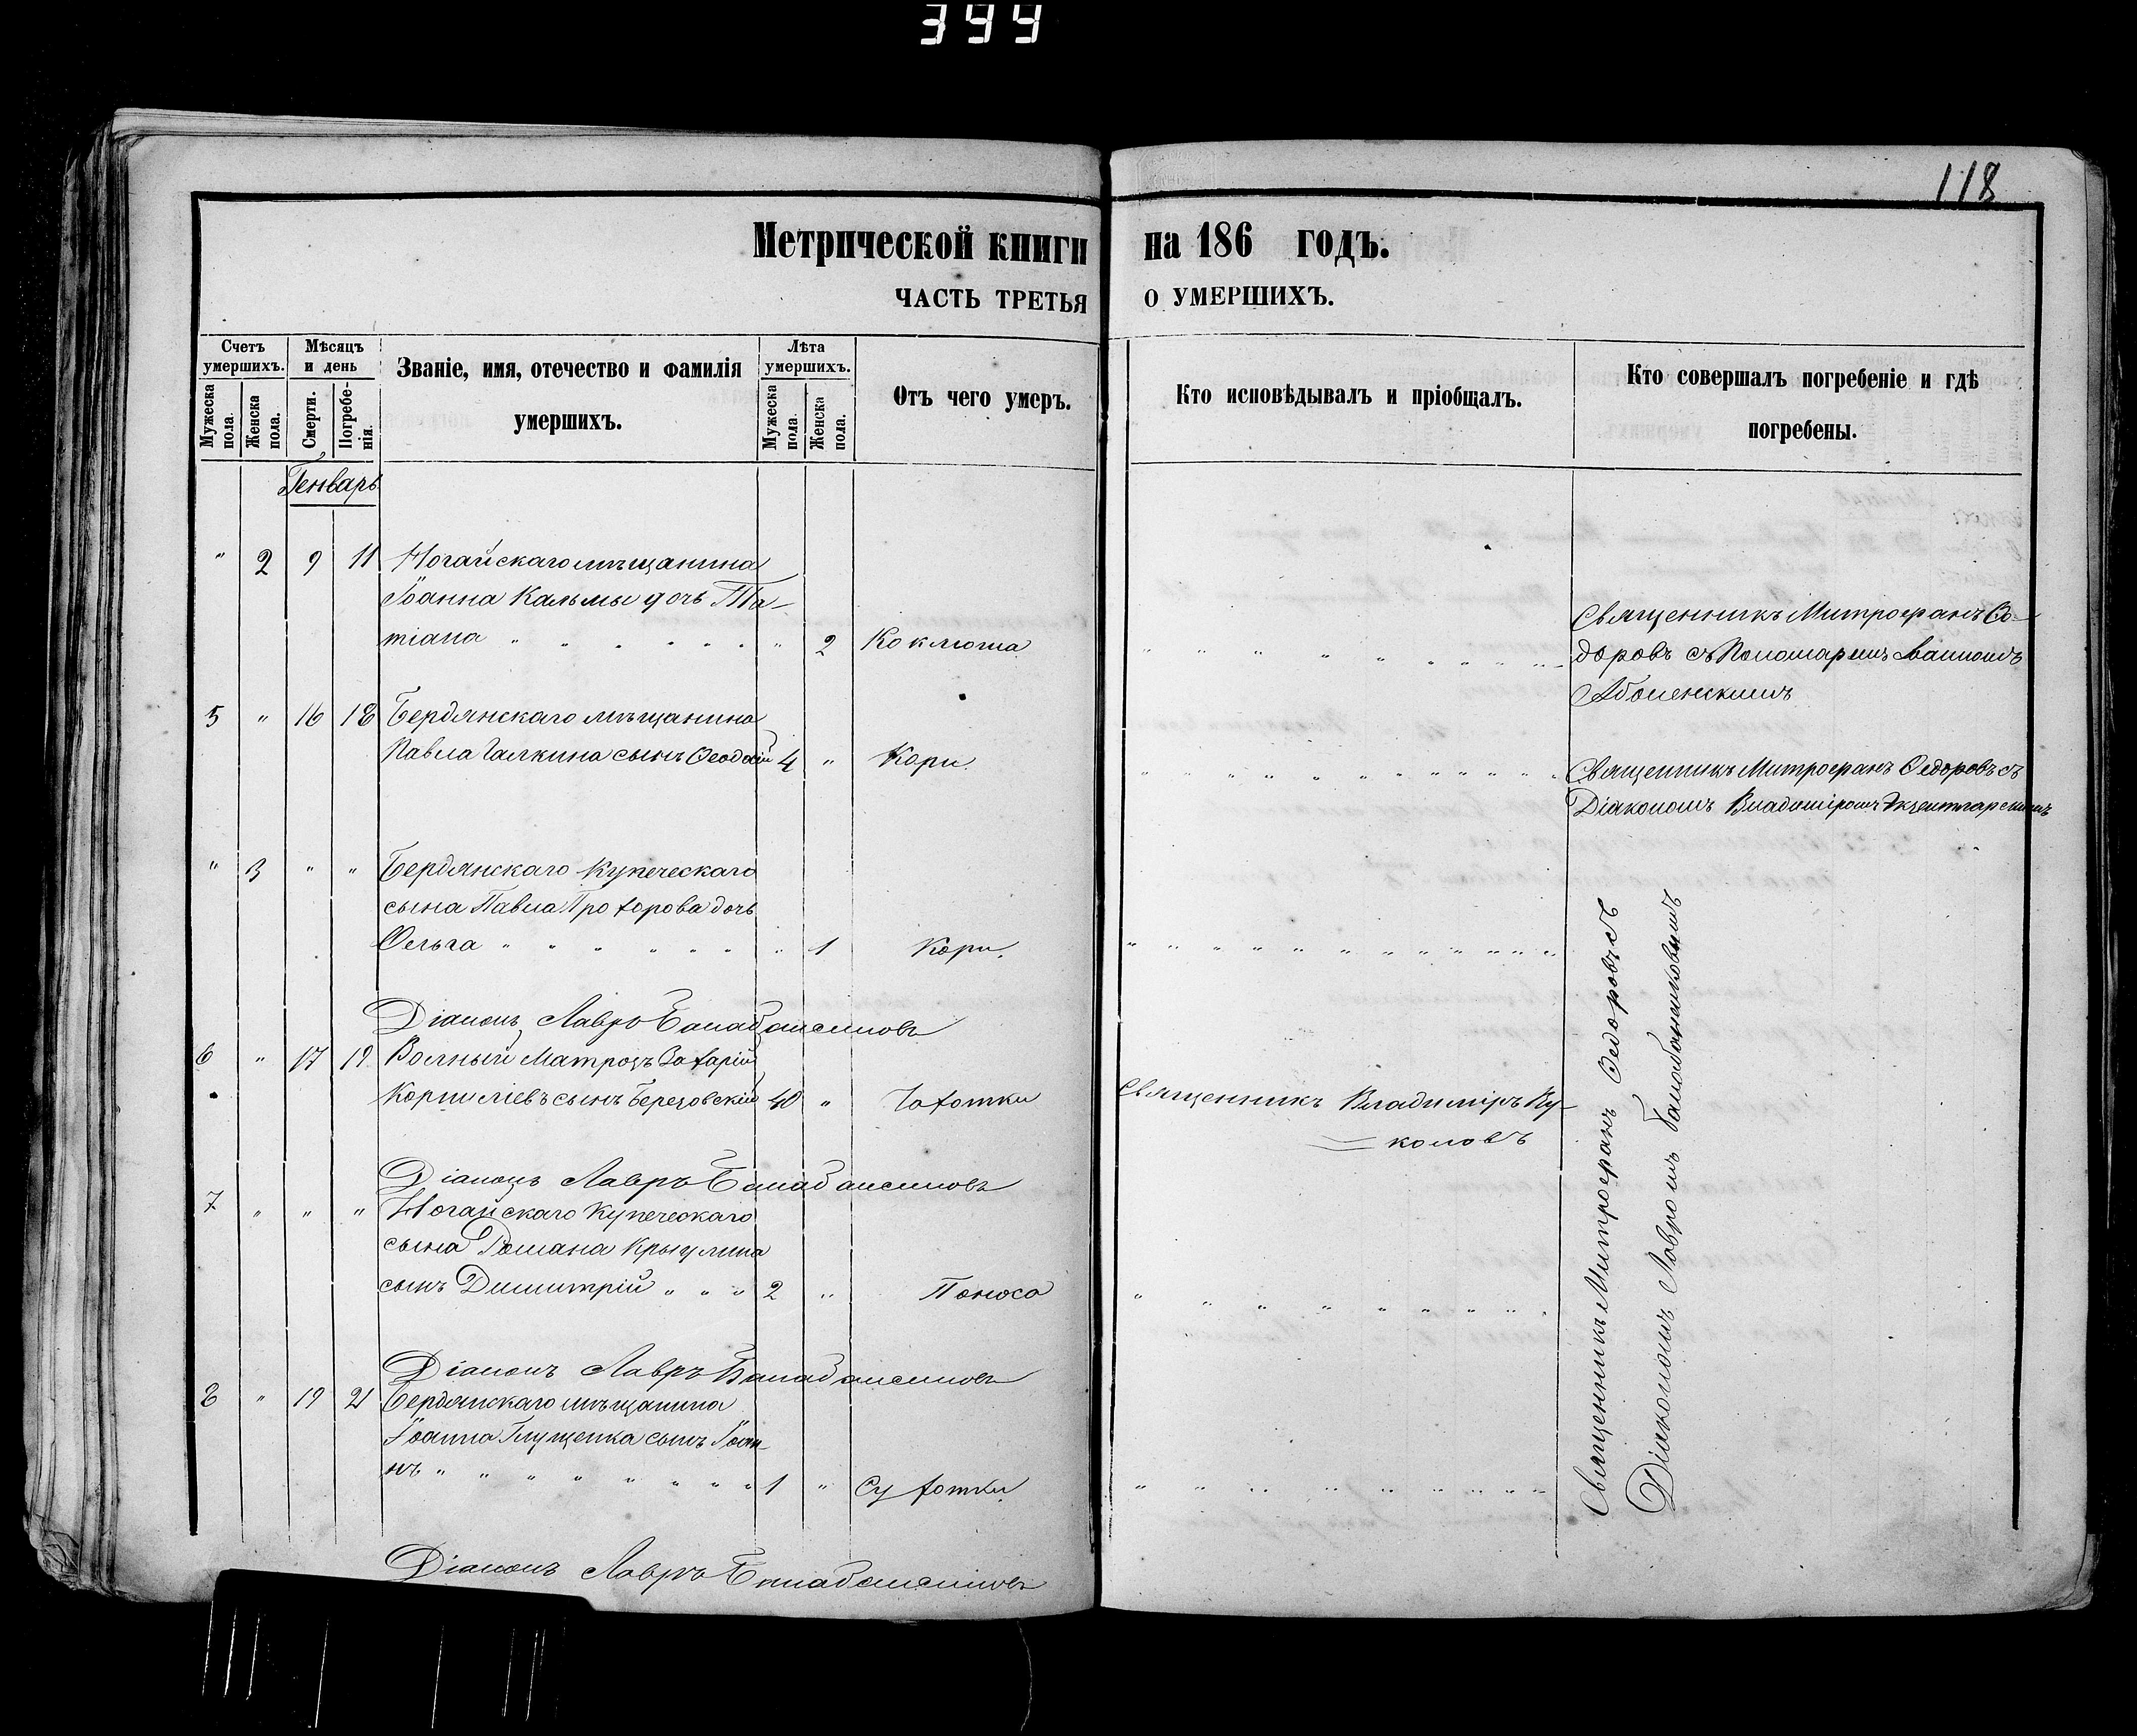 399
118
Метрической книги на 186 годъ.
ЧАСТЬ ТРЕТЬЯ О УМЕРШИХЪ.
Счетъ умершихъ.
Мужеска пола.
Женска пола.
Мѣсяцъ и день
Смерти.
Погребенія.
Званіе, имя, отечество и фамилія умершихъ.
Лѣта умершихъ.
Мужеска пола.
Женска пола.
Отъ чего умеръ.
Кто исповѣдывалъ и пріобщалъ.
Кто совершалъ погребеніе и гдѣ погребены.
Генварь
" 2 9 11 Ногайскаго мѣщанина
Іоанна Кальмы дочь Та-
тіана " " " " " " " 2 Коклюша
Священникъ Митрофанъ Ѳе-
доровъ съ Пономаремъ Іванномъ
5 " 16 18 Бердянскаго мѣщанина
Павла Галкина сынъ Ѳеодосій 4 " Кори.
Священникъ Митрофанъ Ѳедоровъ съ
Діакономъ Владиміромъ
" 3 " " Бердянскаго Купеческаго
сына Павла Прохорова дочь
Ольга " " " " " " " 1 Кори.
Діаконъ Лавръ
6 " 17 19 Вольный Матрозъ Захарій
Корниліевъ сынъ Березовскій 40 " Чахотки
Священникъ Владиміръ Ку-
коловъ
Діаконъ Лавръ
7 " " " Ногайскаго Купеческаго
сына Романа Крыгулина
сынъ Димитрій " " " 2 " Поноса
Діаконъ Лавръ
8 " 19 21 Бердянскаго мѣщанина
Іоанна Глущенка сынъ Іоан-
нъ " " " " " " " " 1 " Сухотки
Діаконъ Лавръ
Священникъ Митрофанъ Ѳедоровъ съ
Діакономъ Лавромъ